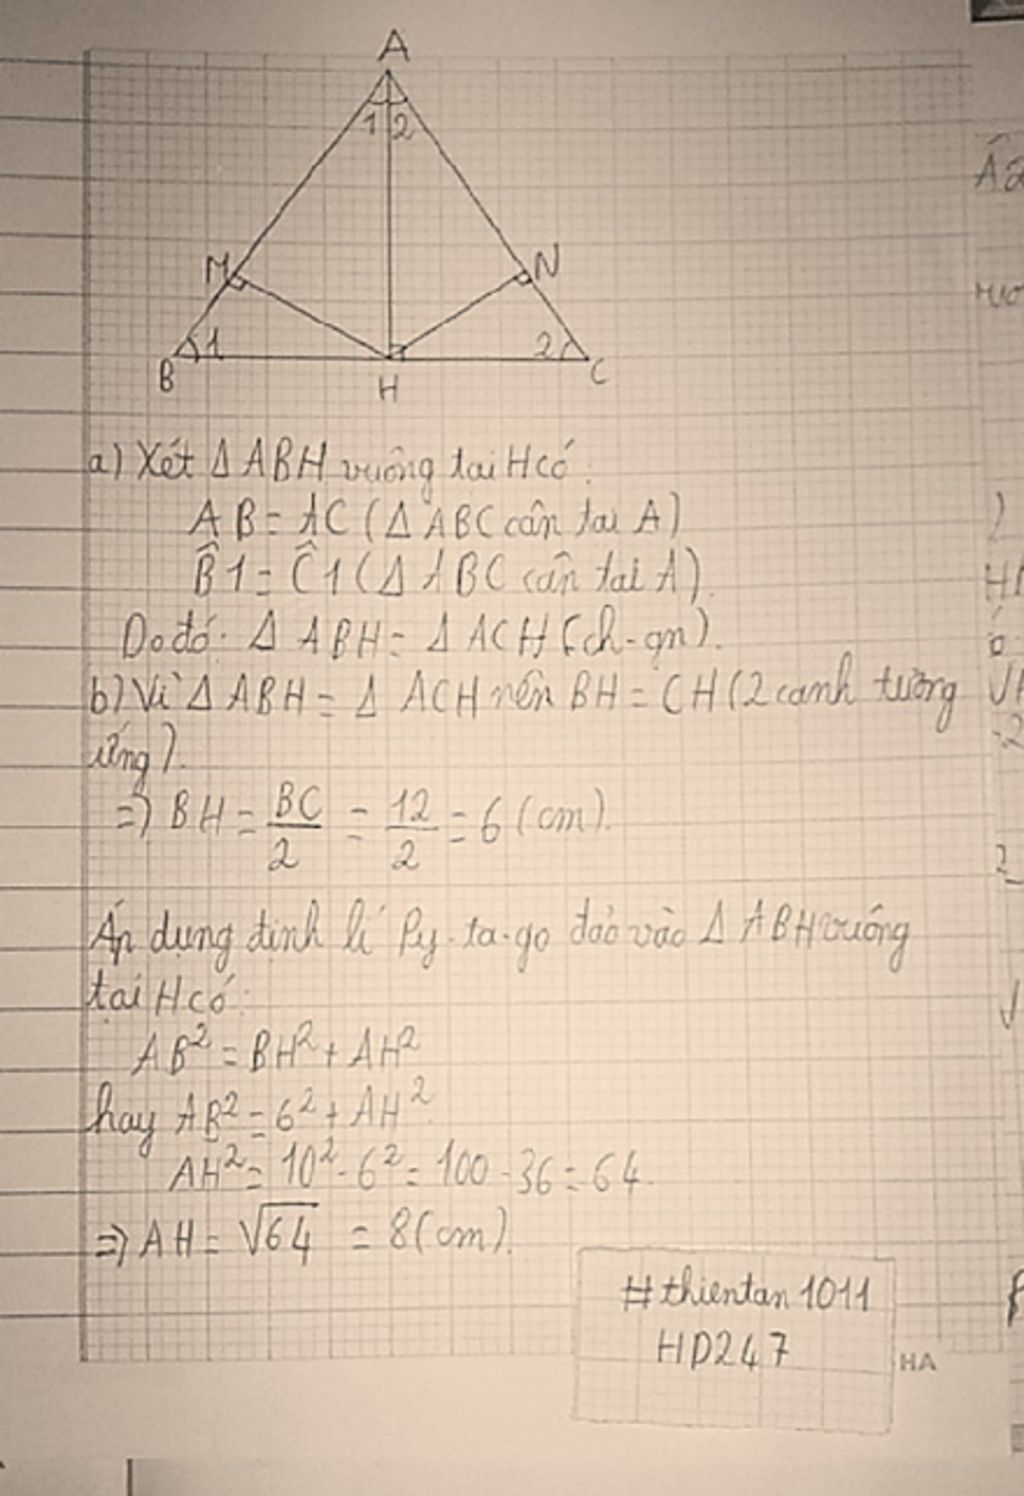 A
1 2
M N
B 1 2 C
H
a) Xét Δ ABH vuông tại H có:
AB = AC (Δ ABC cân tại A)
B̂1 = Ĉ1 (Δ ABC cân tại A).
Do đó: Δ ABH = Δ ACH (ch-gn).
b) Vì Δ ABH = Δ ACH nên BH = CH (2 cạnh tương
ứng).
=> BH = BC/2 = 12/2 = 6 (cm).
Áp dụng định lí Py-ta-go đảo vào Δ ABH vuông
tại H có:
AB² = BH² + AH²
hay AB² = 6² + AH²
AH² = 10² - 6² = 100 - 36 = 64.
=> AH = √64 = 8 (cm).
#thientan1011
HD247
HA